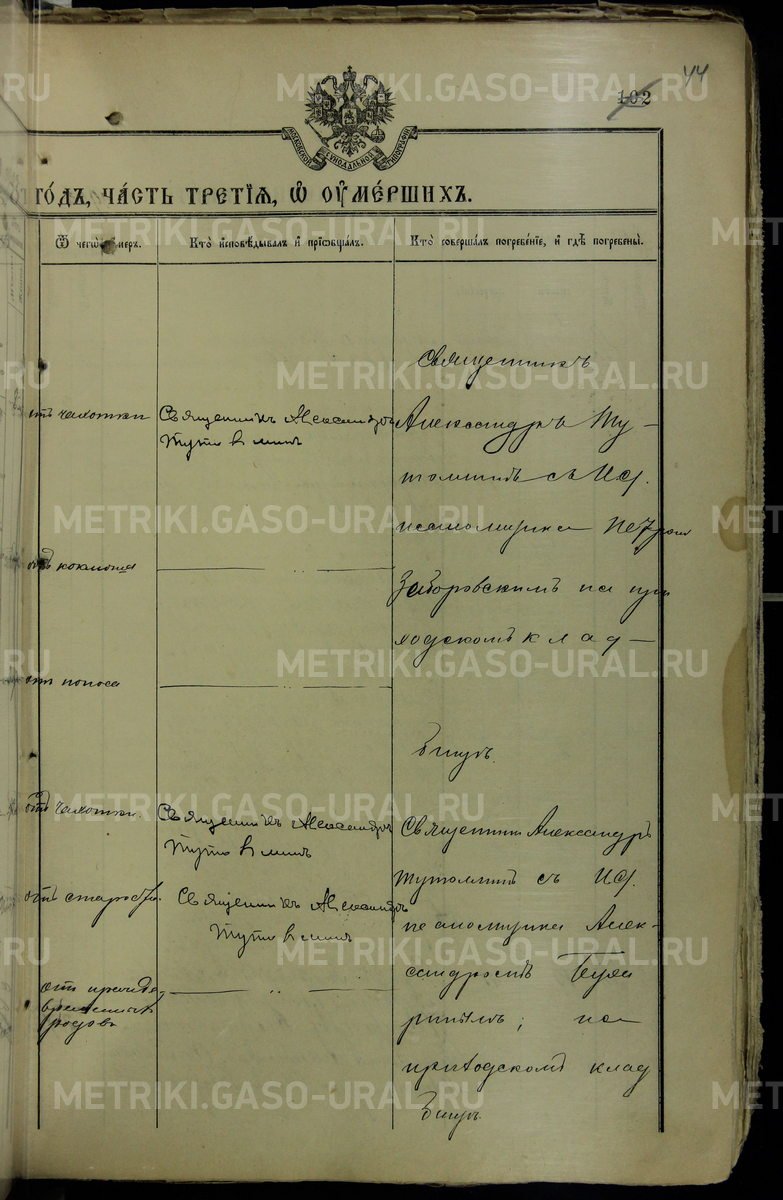 44
102
МОСКОВСКОЙ СѴНОДАЛЬНОЙ ТИПОГРАФІИ
ГО́ДЪ, ЧА́СТЬ ТРЕ́ТІѦ, Ѽ ОУ҆МЕ́РШИХЪ.
Ѿ чегѡ̀ оу҆́меръ.
Кто̀ и҆сповѣ́дывалъ и҆ прїѡбща́лъ.
Кто̀ соверша́лъ погребе́нїе, и҆ гдѣ̀ погребены̀.
отъ чахотки
Священникъ Александръ
Тутолминъ
Священникъ
Александръ Ту-
толминъ съ И.д.
псаломщика Петром
Заборовскимъ на при
ходскомъ клад-
бищѣ.
отъ коклюша
отъ поноса
отъ чахотки.
Священникъ Александръ
Тутолминъ
Священник Александръ
Тутолминъ съ И.д.
псаломщика Алек-
сандромъ
на
приходскомъ клад
бищѣ.
отъ старости.
Священникъ Александръ
Тутолминъ
отъ
родовъ
METRIKI.GASO-URAL.RU